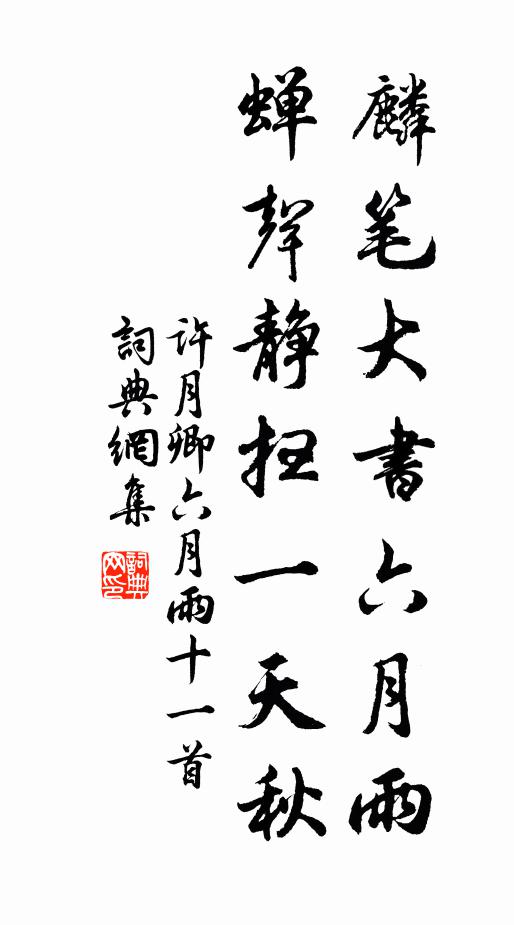 麟笔大書六月雨
蝉聲静抂一天秋
許月卿六月雨十一首
詞典網集
詞典网印